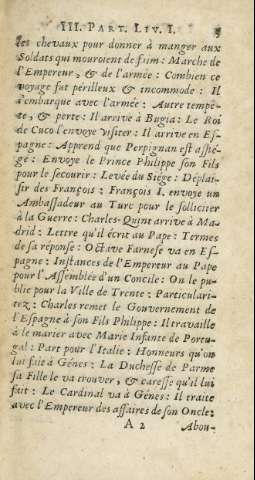 III. PART. LIV. I. 3
ses chevaux pour donner à manger aux
Soldats qui mouroient de faim : Marche de
l'Empereur, & de l'armée : Combien ce
voyage fut périlleux & incommode : Il
s'embarque avec l'armée : Autre tempê-
te, & perte : Il arrive à Bugia : Le Roi
de Cuco l'envoye visiter : Il arrive en Es-
pagne : Apprend que Perpignan est assié-
gé : Envoye le Prince Philippe son Fils
pour le secourir : Levée du Siége : Déplai-
sir des François : François I. envoye un
Ambassadeur au Turc pour le solliciter
à la Guerre : Charles-Quint arrive à Ma-
drid : Lettre qu'il écrit au Pape : Termes
de sa réponse : Octave Farnese va en Es-
pagne : Instances de l'Empereur au Pape
pour l'Assemblée d'un Concile : On le pu-
blie pour la Ville de Trente : Particulari-
tez : Charles remet le Gouvernement de
l'Espagne à son Fils Philippe : Il travaille
à le marier avec Marie Infante de Portu-
gal : Part pour l'Italie : Honneurs qu'on
lui fait à Génes : La Duchesse de Parme
sa Fille le va trouver, & caresse qu'il lui
fait : Le Cardinal va à Génes : Il traite
avec l'Empereur des affaires de son Oncle :
A 2 Abou-